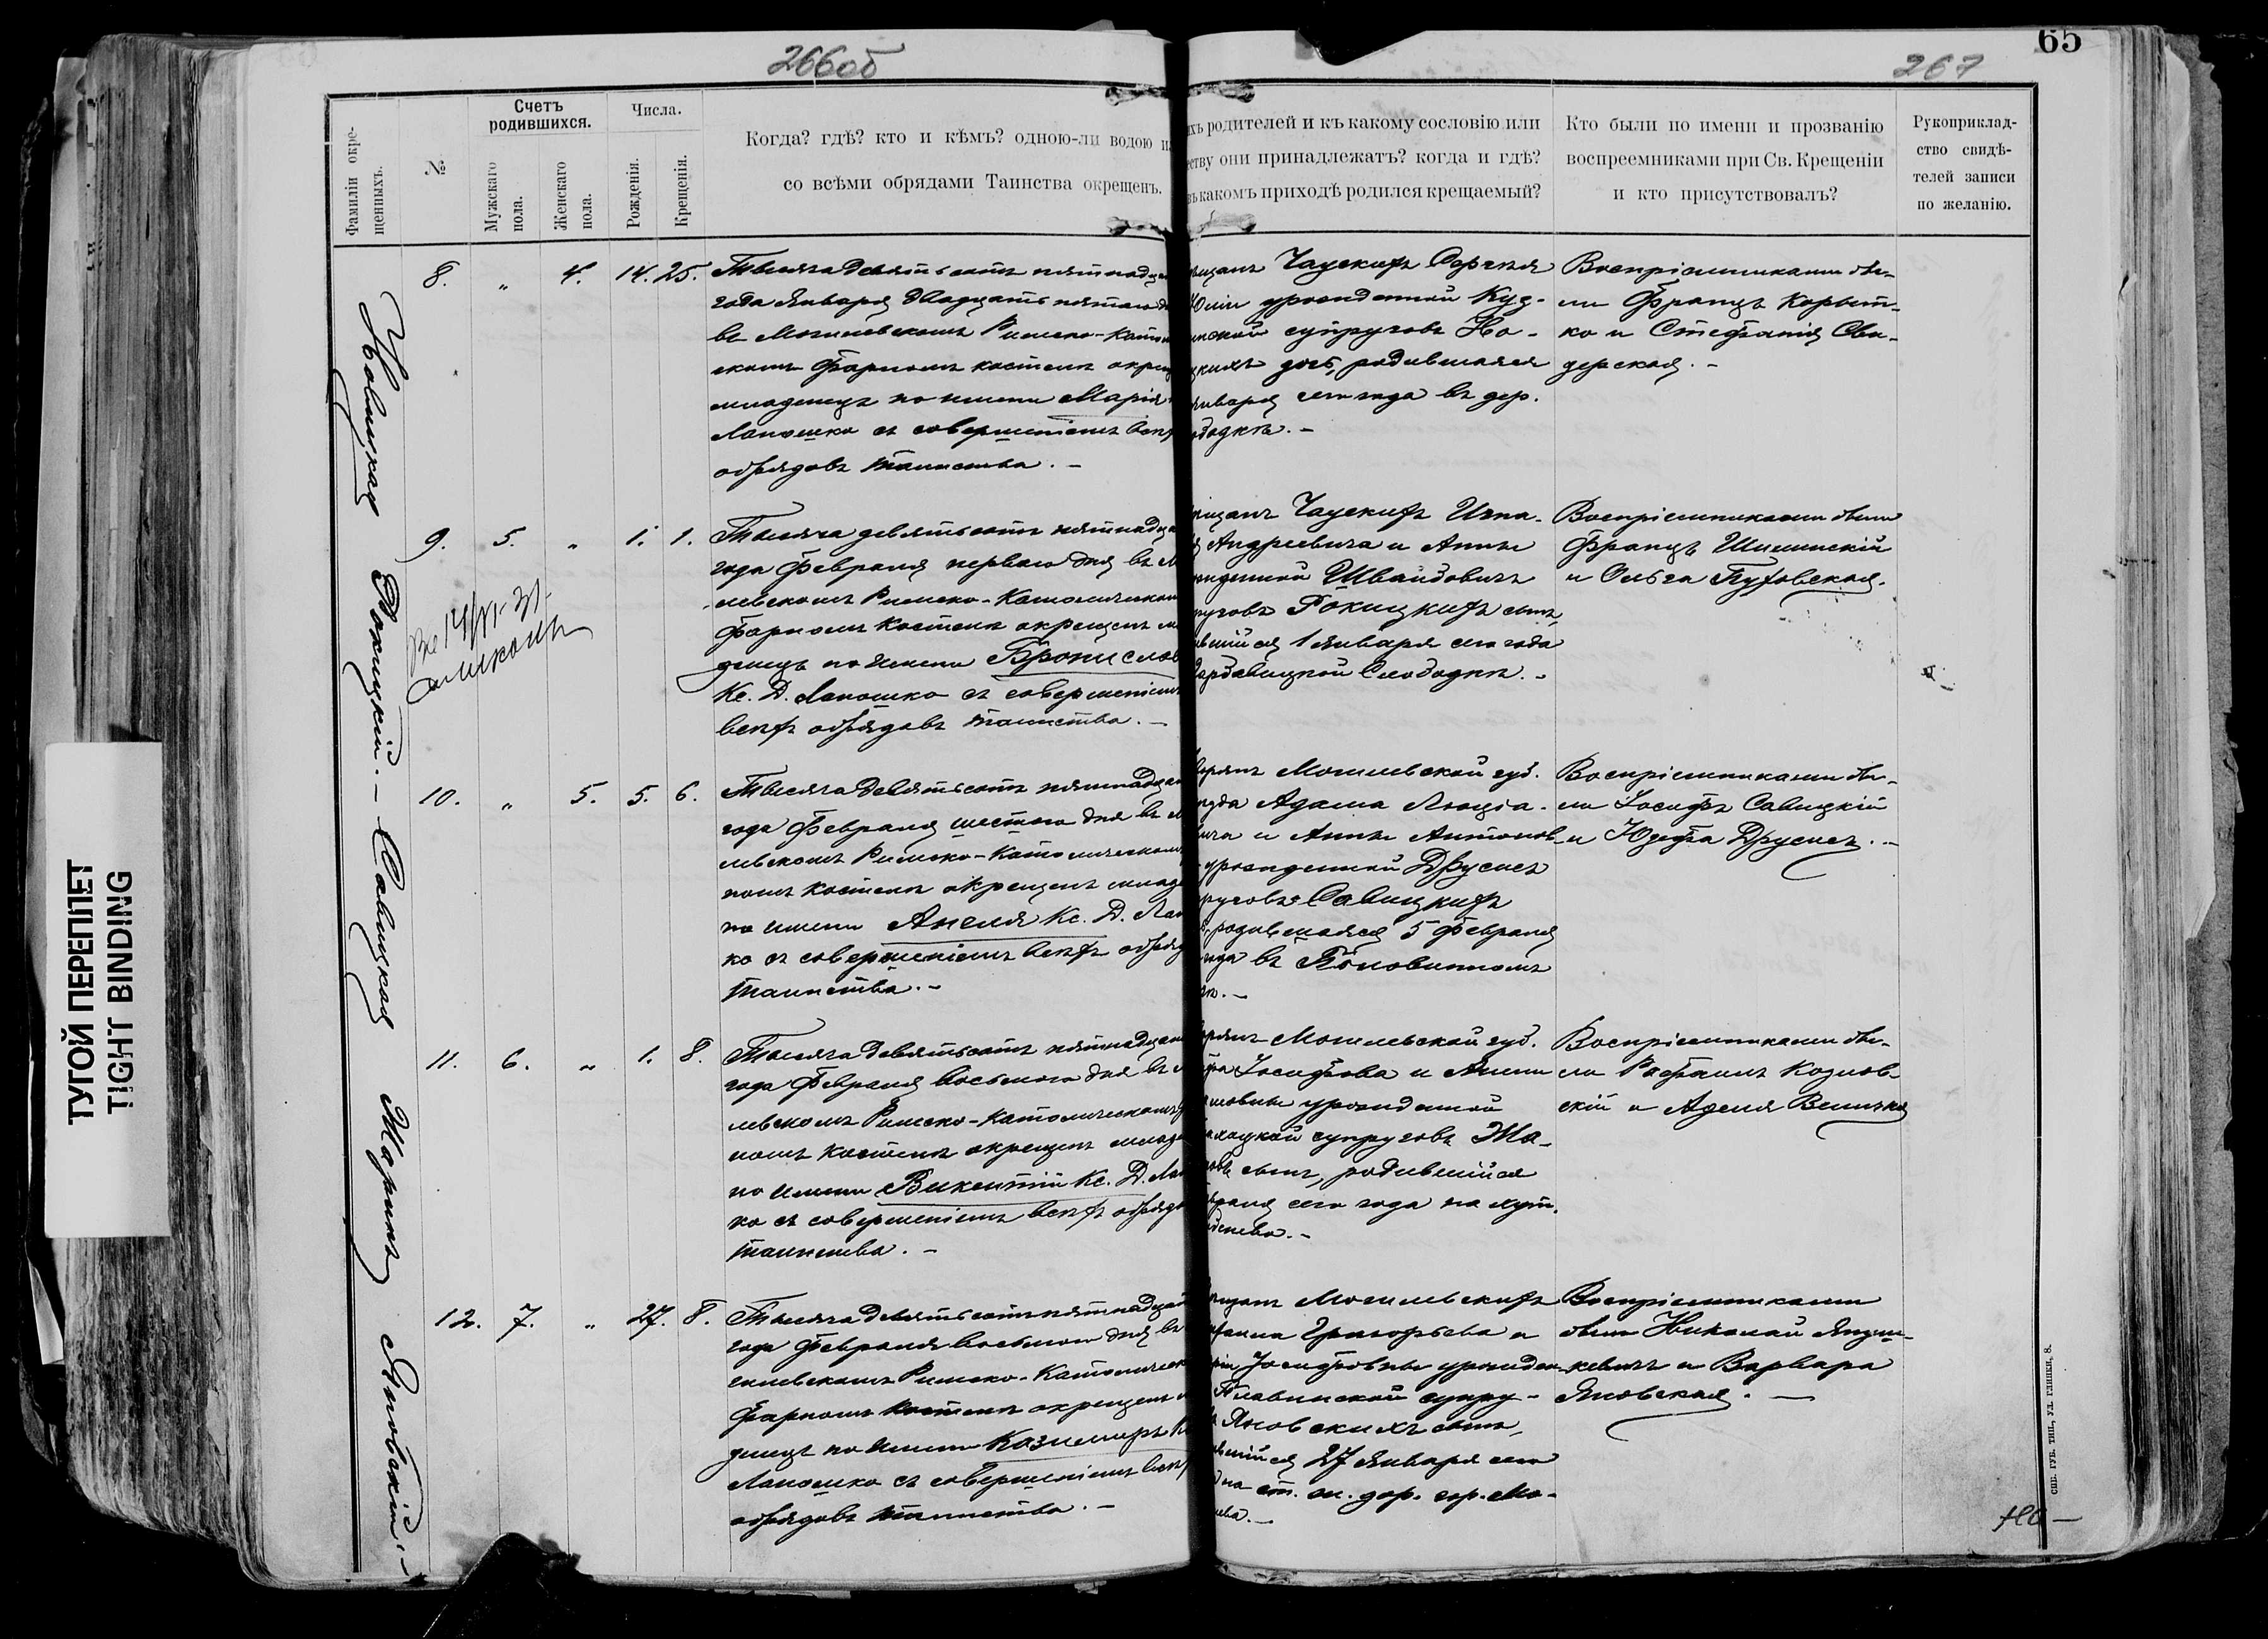 266об
65
267
Фамиліи окре-
щенныхъ.
№
Счетъ
родившихся.
Мужскаго
пола.
Женскаго
пола.
Числа.
Рожденія.
Крещенія.
Когда? гдѣ? кто и кѣмъ? одною-ли водою и
со всѣми обрядами Таинства окрещенъ.
ихъ родителей и къ какому сословію или
еству они принадлежатъ? когда и гдѣ?
въ какомъ приходѣ родился крещаемый?
Кто были по имени и прозванію
воспреемниками при Св. Крещеніи
и кто присутствовалъ?
Рукоприклад-
ство свидѣ-
телей записи
по желанію.
Новицкая
8. " 4. 14. 25.
Тысяча девятьсотъ пятнадца
года Января двадцать пятаго д
въ Могилевскомъ Римско-Катол
скомъ Фарномъ костелѣ окрещ
младенецъ по имени Марія
Лапошко съ совершеніемъ всѣхъ
обрядовъ таинства. –
ѣщанъ Чаускихъ Сергѣя
Юліи урожденной Куд-
инской супруговъ Но-
цкихъ дочь, родившаяся
января сего года въ дер.
ободкѣ. –
Воспріемниками бы-
ли Францъ Корыт-
ко и Стефанія Сви-
дерская. –
Рокицкій. –
9. 5. " 1. 1.
Тысяча девятьсотъ пятнадца
года Февраля перваго дня въ М
левскомъ Римско-Католическом
фарномъ костелѣ окрещенъ м
денецъ по имени Бронислав
Кс. Д. Лапошко съ совершеніемъ
всѣхъ обрядовъ таинства. –
ѣщанъ Чаускихъ Игна-
я Андреевича и Анны
жденной Швайдовичъ
руговъ Рокицкихъ сынъ,
вшійся 1 Января сего года
Слободкѣ. –
Воспріемниками были
Францъ Шиминскій
и Ольга Пуховская.
Савицкая
10. " 5. 5. 6.
Тысяча девятьсотъ пятнадца
года Февраля шестого дня въ М
левскомъ Римско-Католическомъ
номъ костелѣ окрещенъ младе
по имени Анеля Кс. Д. Лап
ко съ совершеніемъ всѣхъ обряд
таинства. –
ворянъ Могилевской губ.
ѣзда Адама Люціа-
вича и Анны Антонов
урожденной Друсисъ
руговъ Савицкихъ
родившаяся 5 Февраля
года въ Половинномъ
Воспріемниками бы-
ли Іосифъ Савицкій
и Юзефа Друсисъ. –
Жаринъ
11. 6. " 1. 8.
Тысяча девятьсотъ пятнадцат
года Февраля восьмого дня въ М
левскомъ Римско-Католическомъ
номъ костелѣ окрещенъ младе
по имени Викентій Кс. Д. Лап
ко съ совершеніемъ всѣхъ обрядо
таинства. –
орянъ Могилевской губ.
Іосифова и
новны урожденной
супруговъ Жа-
сынъ, родившійся
враля сего года на хут.
Воспріемниками бы-
ли Рафаилъ Козлов
скій и Аделя Величко
Яновскій. –
12. 7. " 27. 8.
Тысяча девятьсотъ пятнадцат
года Февраля восьмого дня въ
гилевскомъ Римско-Католическ
фарномъ костелѣ окрещенъ м
денецъ по имени Казимиръ К
Лапошко съ совершеніемъ всѣхъ
обрядовъ таинства. –
ѣщанъ Могилевскихъ
Григорьева и
Іосифовны урожден
супру-
Яновскихъ сынъ,
вшійся 27 Января сего
на ст. ж. дор. гор. Мо-
лева. –
Воспріемниками
были Николай Януш-
кевичъ и Варвара
Яновская. –
СПБ. ГУБ. ТИП., УЛ. ГЛИНКИ, 8.
ТУГОЙ ПЕРЕПЛЕТ
TIGHT BINDING